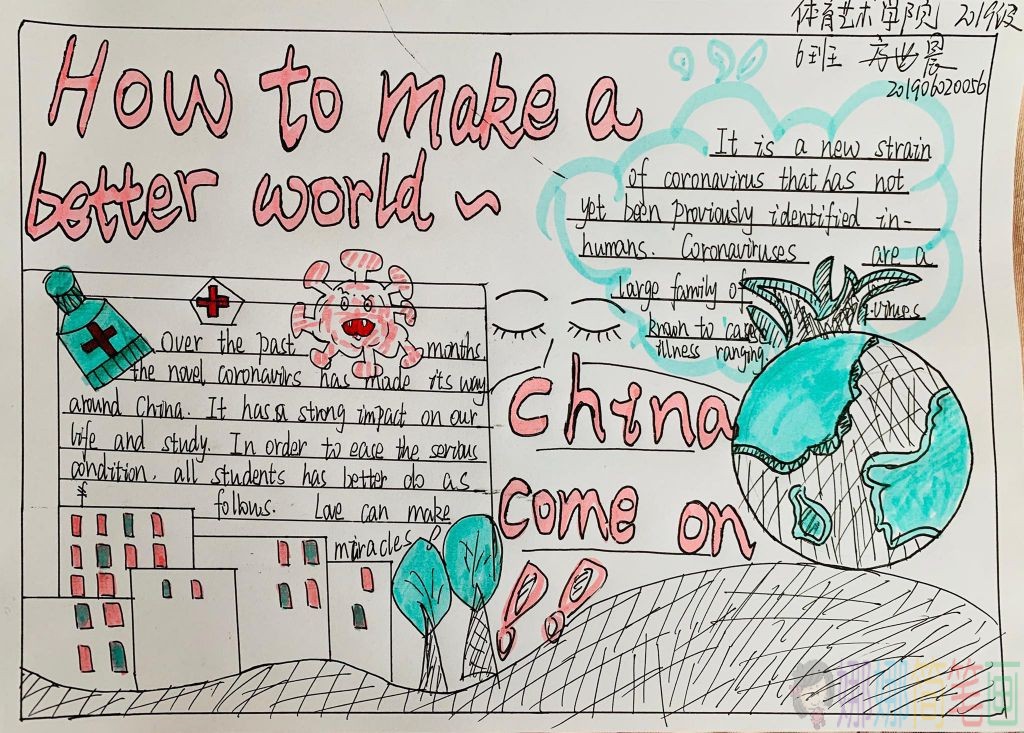 体育艺术学院 2019级
6班 方世晨
201906020056
How to make a
better world ~
It is a new strain
of coronavirus that has not
yet been proviously identified in-
humans. Coronaviruses are a
large family of viruses
known to cause
illness ranging.
Over the past months,
the novel coronavirs has made its way
around China. It has a strong impact on our
life and study. In order to ease the serious
condition, all students has better do as
follows. Love can make
miracles
China
come on
!!
娜娜简笔画